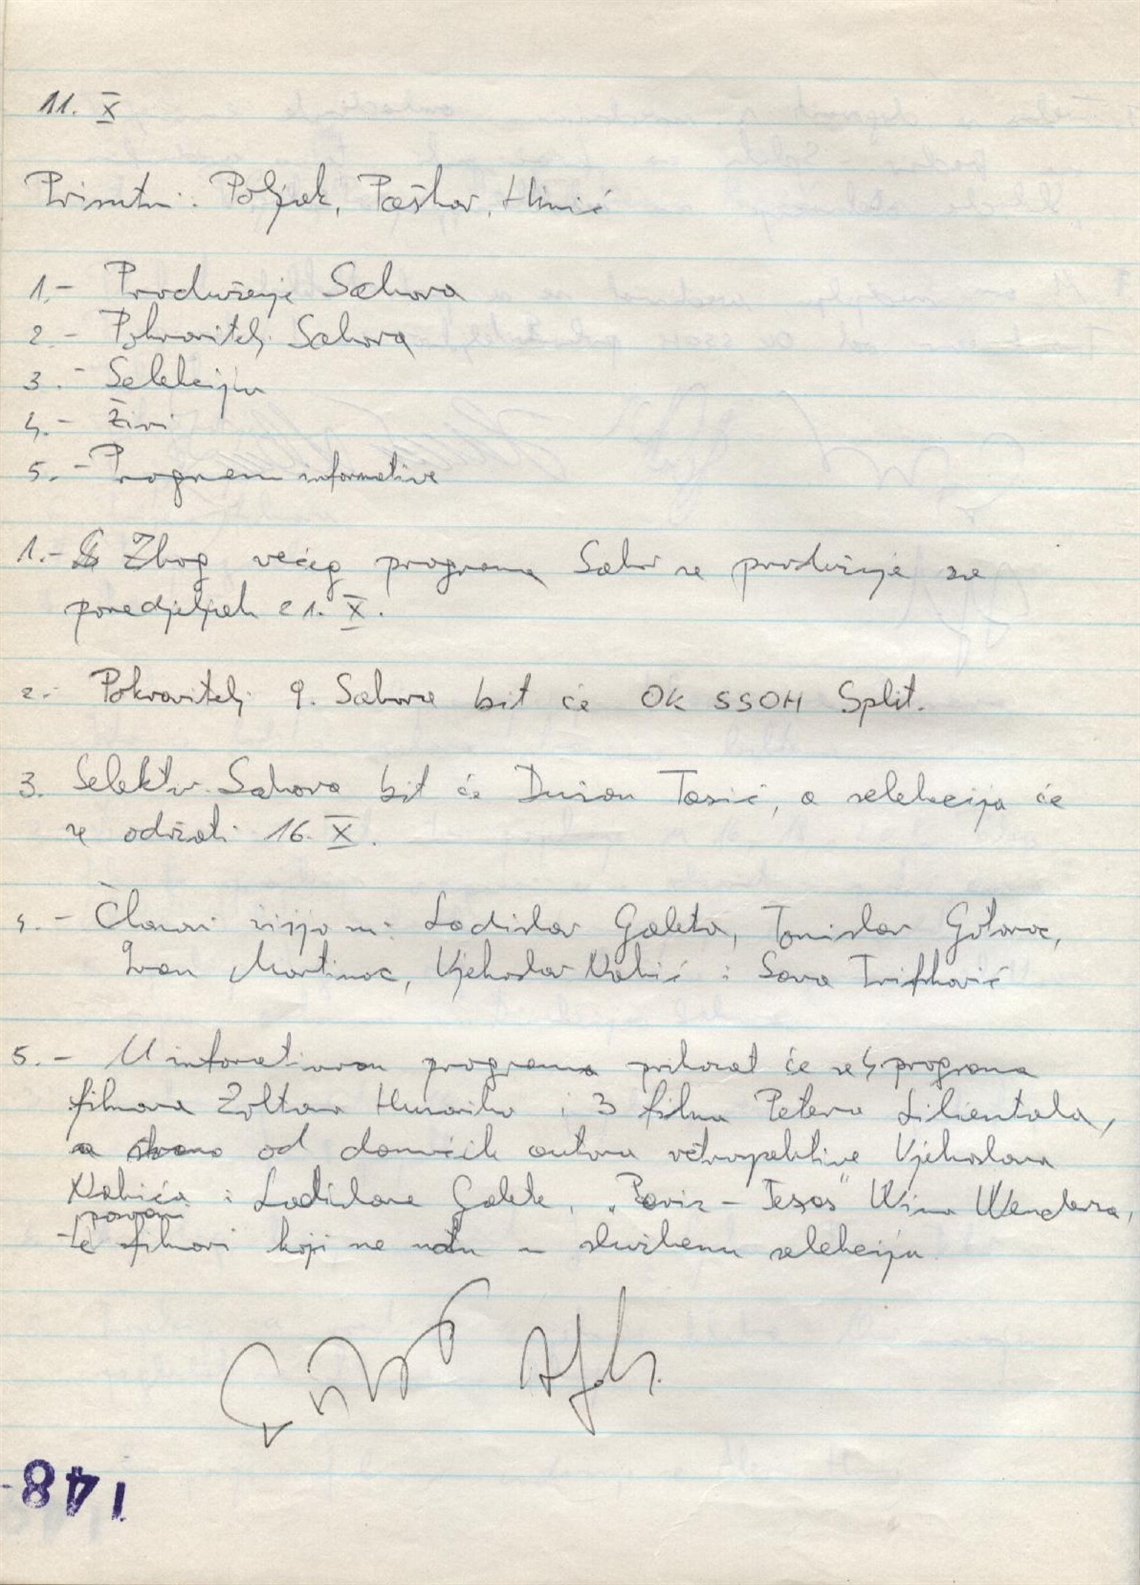 11. X
Prisutni: Poljak, Paškov, Himić
1.- Produženje Sabora
2.- Pokrovitelj Sabora
3.- Selekcija
4.- Žiri
5.- Program informative
1.- Zbog većeg programa Sabor se produžuje za
ponedjeljek 21. X.
2.- Pokrovitelj 9. Sabora bit će OK SSOH Split.
3. Selektor Sabora bit će Dušan Tasić, a selekcija će
se održati 16. X.
4.- Članovi žirija su: Ladislav Galeta, Tomislav Gotovac,
Ivan Martinac, Vjekoslav Nakić i Sava Trifković
5.- U informativnom programu prikazat će se 4 programa
filmova Zoltana Huszarika i 3 filma Petera Lilientala,
a od domaćih autora retrospektive Vjekoslava
Nakića i Ladislava Galete, „Paris - Texas" Wima Wendersa,
te filmovi koji ne uđu u službenu selekciju.
148